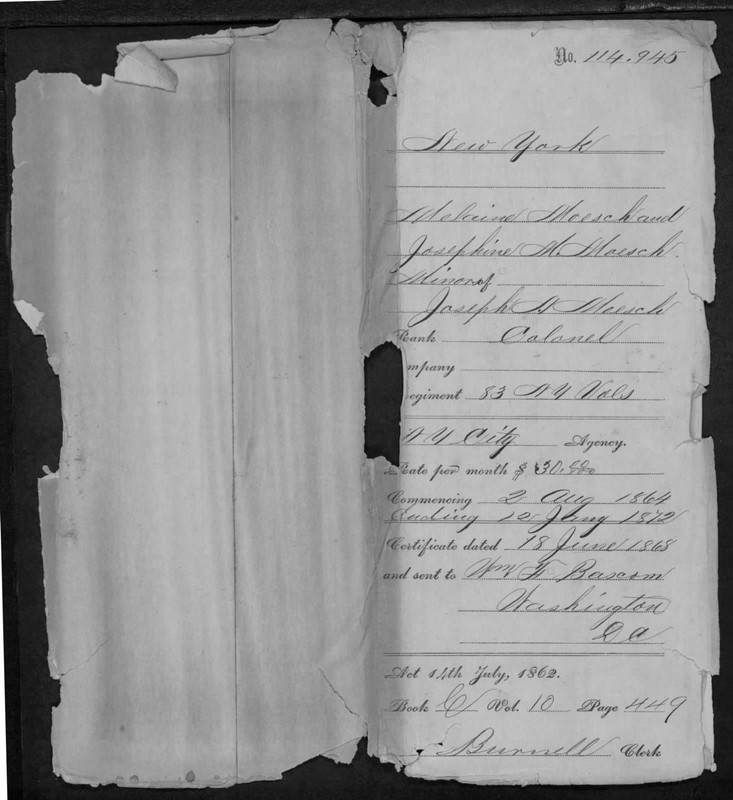 No. 114.945
New York
Melaine Moesch and
Josephine M. Moesch.
Minors of
Joseph A Moesch
Rank Colonel
mpany
egiment 83 NY Vols
NY City Agency.
Rate per month $ 30.00
Commencing 2 Aug 1864
Ending 12 Jany 1872
Certificate dated 18 June 1868
and sent to Wm F Bascom
Washington
DC
Act 14th July, 1862.
Book C Vol. 10 Page 449
Burnell Clerk